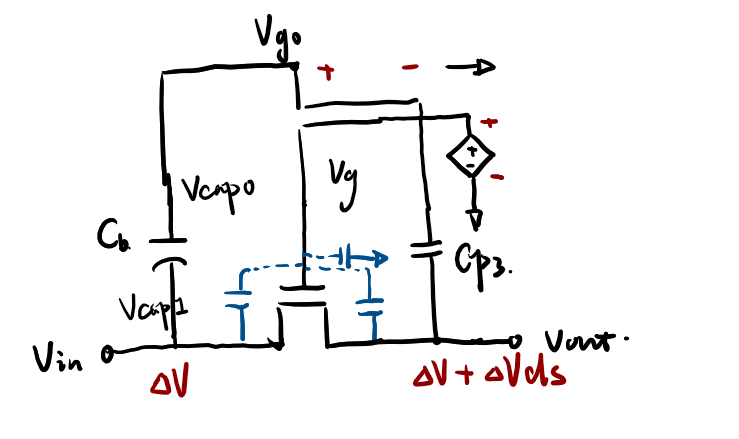 Vg0
+ -
+
Vcap0
Vg
+
-
-
Cb
Cp3.
Vcap1
Vin
Vout.
ΔV
ΔV + ΔVds